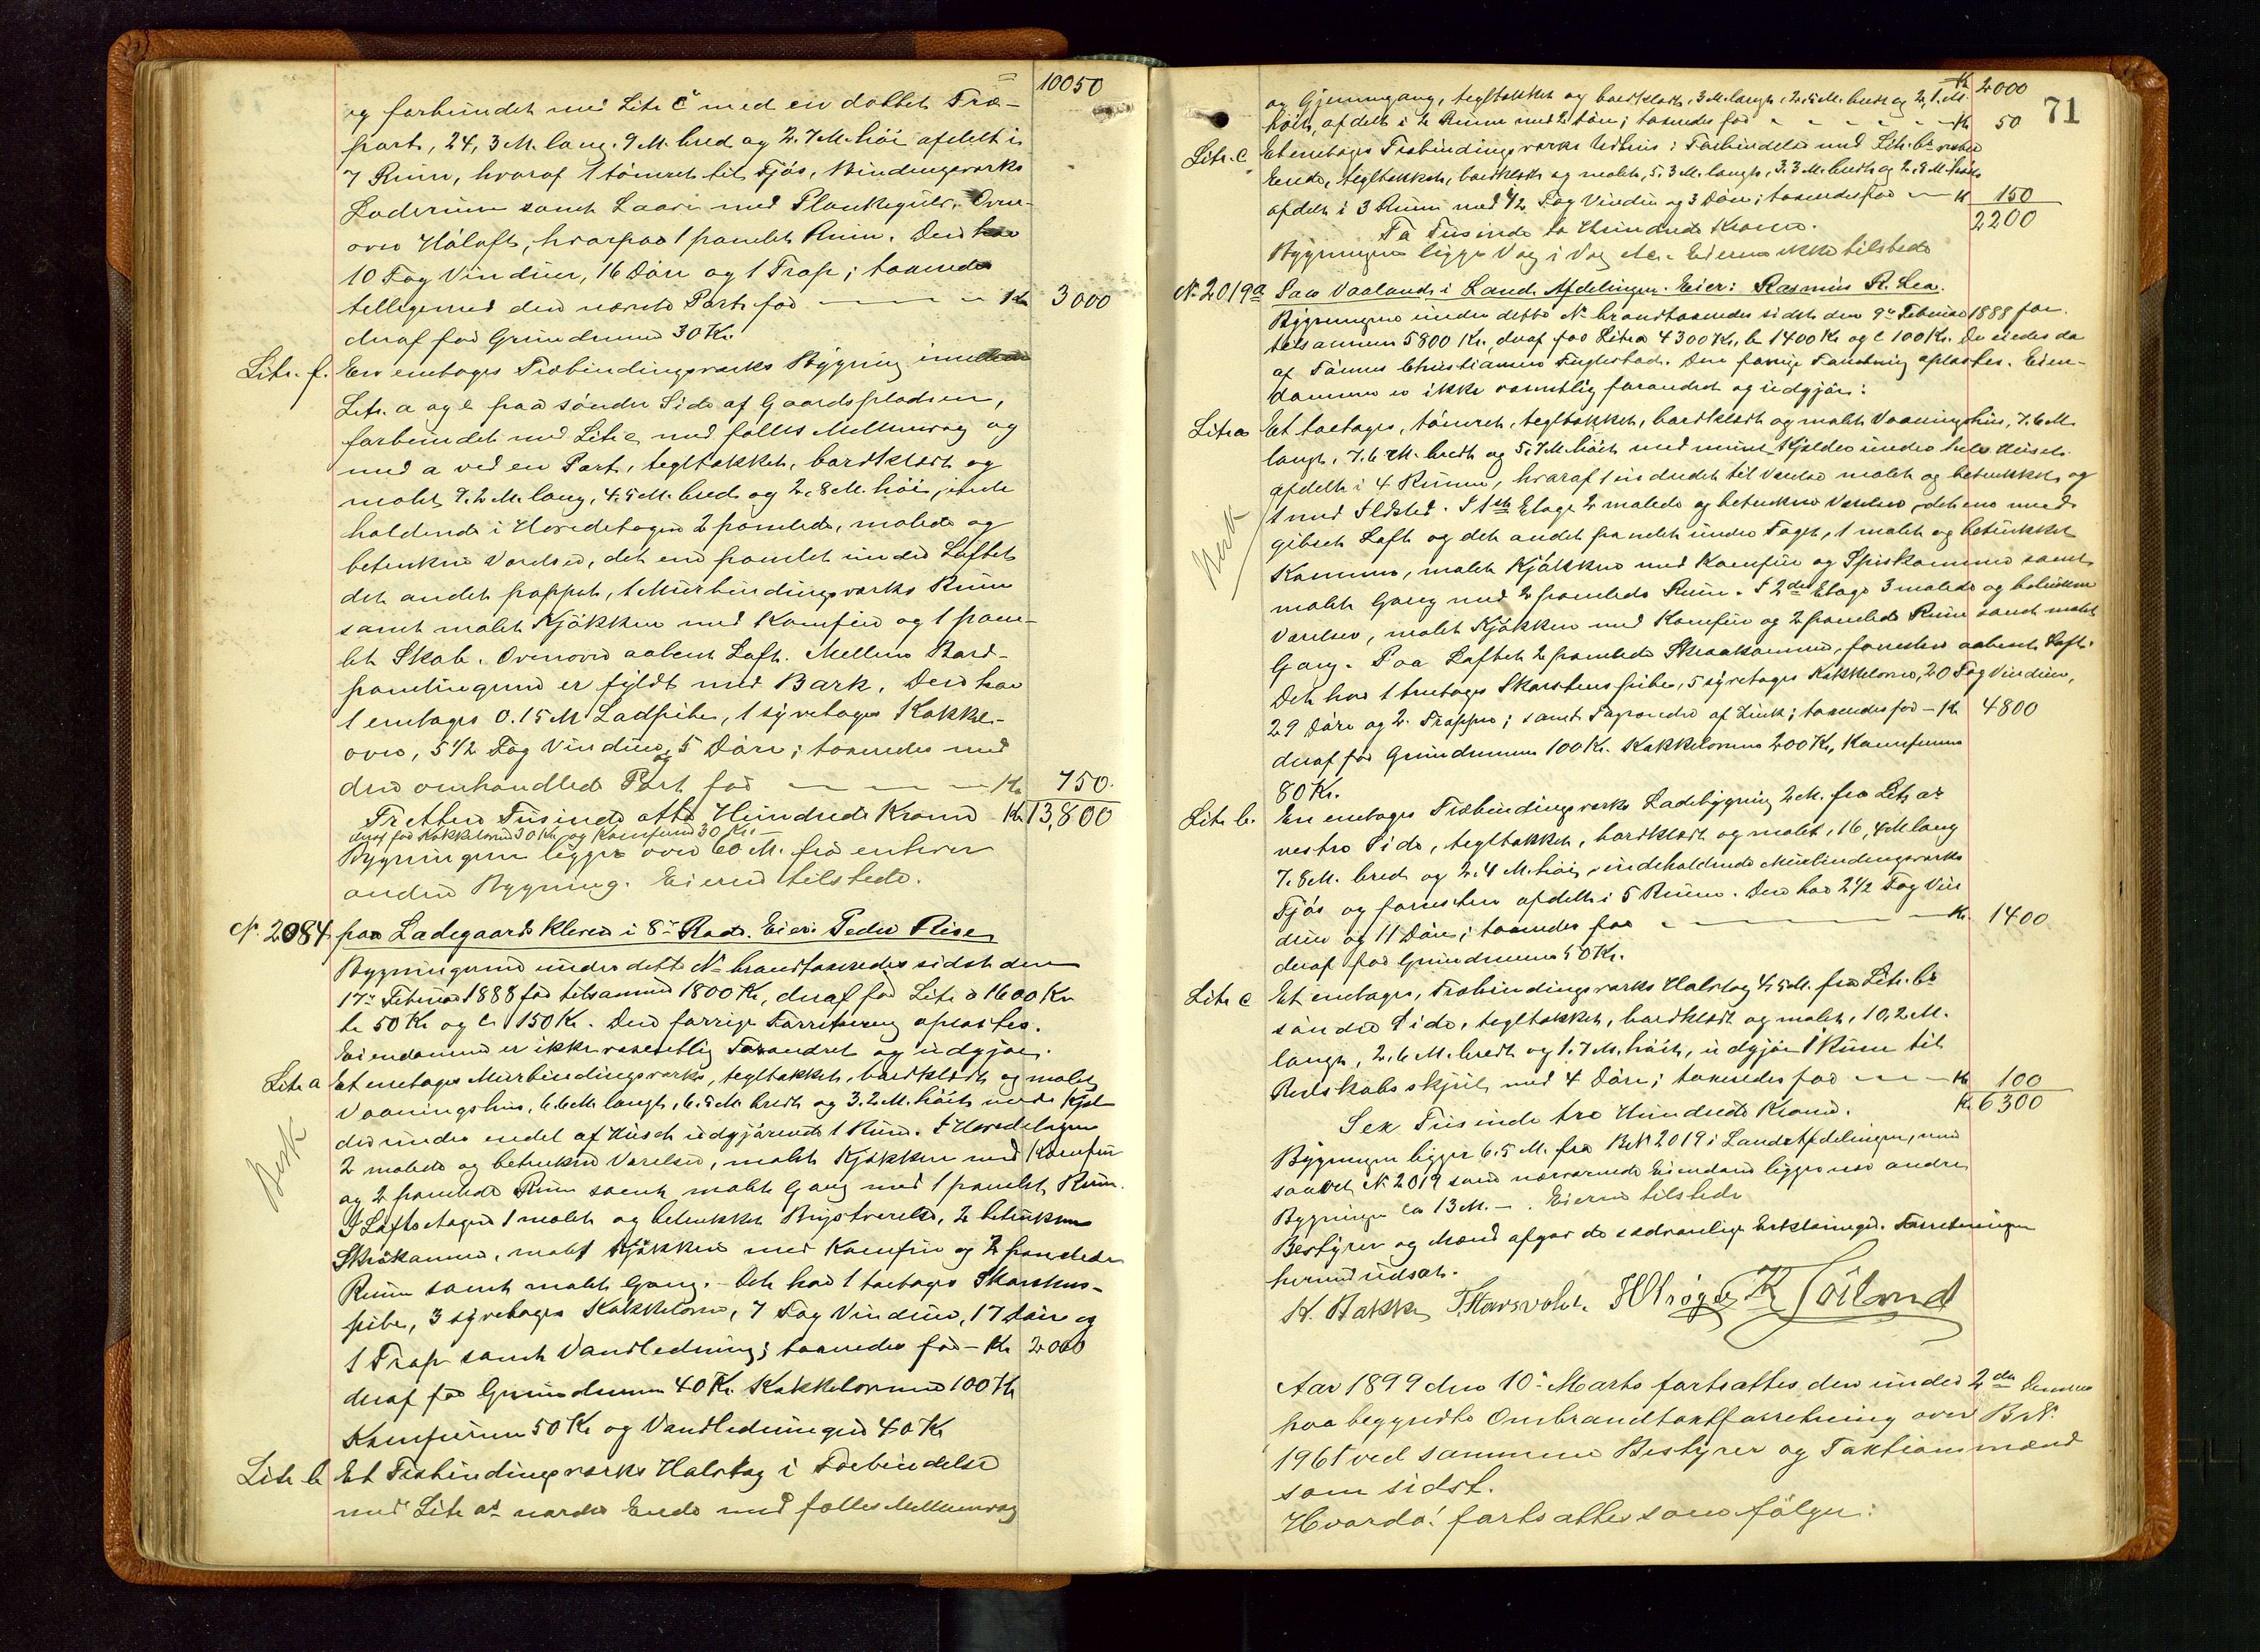 10050
og forbundet med Litr c med en dobbelt Træ-
port, 24,3 M. lang. 9 M. bred og 2.7 M. høi afdelt i
7 Rum, hvoraf 1 tømret til Fjøs, Bindingsværks
Laderum samt Laave med Plankegulv. Oven-
over Høloft, hvorpaa 1 panelet Rum. Den har
10 Fag Vinduer, 16 Døre og 1 Trap; taxeredes
tilligemed den nævnte Port for — — — Kr 3000
deraf for Grundmuren 30 Kr.
Litr. f. En enetages Træbindingsværks Bygning imellem
Litr. a og e paa søndre Side af Gaardspladsen,
forbundet med Litr e med fælles Mellemvæg og
med a ved en Port, tegltækket, bordklædt og
malet 9.2 M. lang, 4.5 M. bred og 2.8 M. høi, inde-
holdende i Hovedetagen 2 panelede, malede og
betrukne Værelser, det ene panelet under Loftet
det andet pappet, 1 Murbindingsværks Rum
samt malet Kjøkken med Komfur og 1 pane-
let Skab. Ovenover aabent Loft. Mellem Bord-
panelingerne er fyldt med Bark. Den har
1 enetages 0.15 M Ladpibe, 1 syvetages Kakkel-
ovn, 5 1/2 Fag Vinduer og 5 Døre; taxeredes med
den omhandlede Port for — — — Kr 750.
Tretten Tusinde otte Hundrede Kroner Kr 13,800
deraf for Kakkelovne 30 Kr. og Komfuren 30 Kr. —
Bygningerne ligger over 60 M. fra enhver
anden Bygning. Eieren tilstede.
No. 2084 paa Ladegaards Kleven i 8de Rode. Eier: Peder Risea
Bygningerne under dette No brandtaxeredes sidst den
17de Februar 1888 for tilsammen 1800 Kr, deraf for Litr a 1600 Kr
b 50 Kr og c 150 Kr. Den forrige Forretning oplæstes.
Eiendommen er ikke væsentlig forandret og udgjør.
Litr a Et enetages Murbindingsværks, tegltækket, bordklædt og malet
Vaaningshus, 6.6 M. langt, 6.5 M. bredt og 3.2 M. høit med Kjel-
der under endel af Huset udgjørende 1 Rum. I Hovedetagen
Besk
2 malede og betrukne Værelser, malet Kjøkken med Komfur
og 2 panelede Rum samt malet Gang med 1 panelet Rum.
I Loftsetagen 1 malet og betrukket Kvistværelse, 2 betrukne
Skråkamre, malet Kjøkken med Komfur og 2 panelede
Rum samt malet Gang. — Det har 1 toetages Skorstens-
pibe, 3 syvetages Kakkelovne, 7 Fag Vinduer, 17 Døre og
1 Trap samt Vandledning; taxeredes for — Kr 2000
deraf for Grundmuren 40 Kr. Kakkelovnene 100 Kr
Komfurerne 50 Kr og Vandledningen 40 Kr
Litr b Et Træbindingsværks Halvtag i Forbindelse
med Litr as nordre Ende med fælles Mellemvæg
71
Kr 2000
og Gjennemgang, tegltækket og bordklædt, 3 M. langt, 2.5 M. bredt og 2.1 M.
høit, afdelt i 2 Rum med 2 Døre; taxeredes for — — — Kr 50
Litr. c Et enetages Træbindingsværks Udhus i Forbindelse med Litr. bs vestre
Ende, tegltækket, bordklædt og malet, 5.3 M. langt, 3.3 M. bredt og 2.8 M. høit
afdelt i 3 Rum med 1/2 Fag Vindu og 3 Døre; taxeredes for — Kr 150
2200
To Tusinde to Hundrede Kroner.
Bygningerne ligger Væg i Væg etc. Eieren ikke tilstede
No 2019a Paa Vaaland i Lands Afdelingen. Eier: Rasmus R. Lea.
Bygningerne under dette No brandtaxeredes sidst den 9de Februar 1888 for
tilsammen 5800 Kr, deraf for Litr a 4300 Kr, b 1400 Kr og c 100 Kr. De eiedes da
af Tønnes Christiansen Fuglestad. Den forrige Forretning oplæstes. Eien-
dommen er ikke væsentlig forandret og udgjør:
Litr a Et toetages, tømret, tegltækket, bordklædt og malet Vaaningshus, 7.6 M.
langt, 7.6 M. bredt og 5.7 M. høit med muret Kjælder under hele Huset
afdelt i 4 Rum, hvoraf 1 indredet til Værelse malet og betrukket, og
1 med Ildsted. I 1ste Etage 2 malede og betrukne Værelser, det ene med
Besk
gibset Loft og det andet panelet under Taget, 1 malet og betrukket
Kammer, malet Kjøkken med Komfur og Spiskammer samt
malet Gang med 2 panelede Rum. I 2den Etage 3 malede og betrukne
Værelser, malet Kjøkken med Komfur og 2 panelede Rum samt malet
Gang. Paa Loftet 2 panelede Skraakamre, forresten aabent Loft.
Det har 1 treetages Skorstenspibe, 5 syvetages Kakkelovne, 20 Fag Vinduer,
29 Døre og 2 Trapper; samt Tagrender af Zink; taxeredes for — Kr 4800
deraf for Grundmuren 100 Kr. Kakkelovnene 200 Kr, Komfurerne
80 Kr.
Litr b. En enetages Træbindingsværks Ladebygning 2 M. fra Litr as
vestre Side, tegltækket, bordklædt og malet, 16,4 M lang
7.8 M. bred og 2.4 M. høi, indeholdende Murbindingsværks
Fjøs og forresten afdelt i 5 Rum. Den har 2 1/2 Fag Vin
duer og 11 Døre; taxeredes for — — — Kr. 1400
deraf for Grundmuren 50 Kr.
Litr c Et enetages, Træbindingsværks Halvtag 4.5 M. fra Litr. bs
søndre Side, tegltækket, bordklædt og malet, 10,2 M.
langt, 2.6 M. bredt og 1.7 M. høit, udgjør 1 Rum til
Redskabsskjul, med 4 Døre; taxeredes for — — Kr 100
Sex Tusinde tre Hundrede Kroner. Kr 6300
Bygningen ligger 6.5 M. fra BrNo 2019 i Landsafdelingen, med
saavel No 2019 som nærværende Eiendom ligger nær andre
Bygninger ca 13 M. — . Eieren tilstede
Bestyrer og Mænd afgav de sædvanlige Erklæringer. Forretningen
hermed udsat.
K. Bakke T. Hovsvolds. K Söiland
Aar 1899 den 10de Marts fortsattes den under 2den Dennes
paa begyndte Ombrandtaxtforretning over BrNo.
1961 ved samme Bestyrer og Taxtionsmænd
som sidst.
Hvorda! fortsattes som følger: